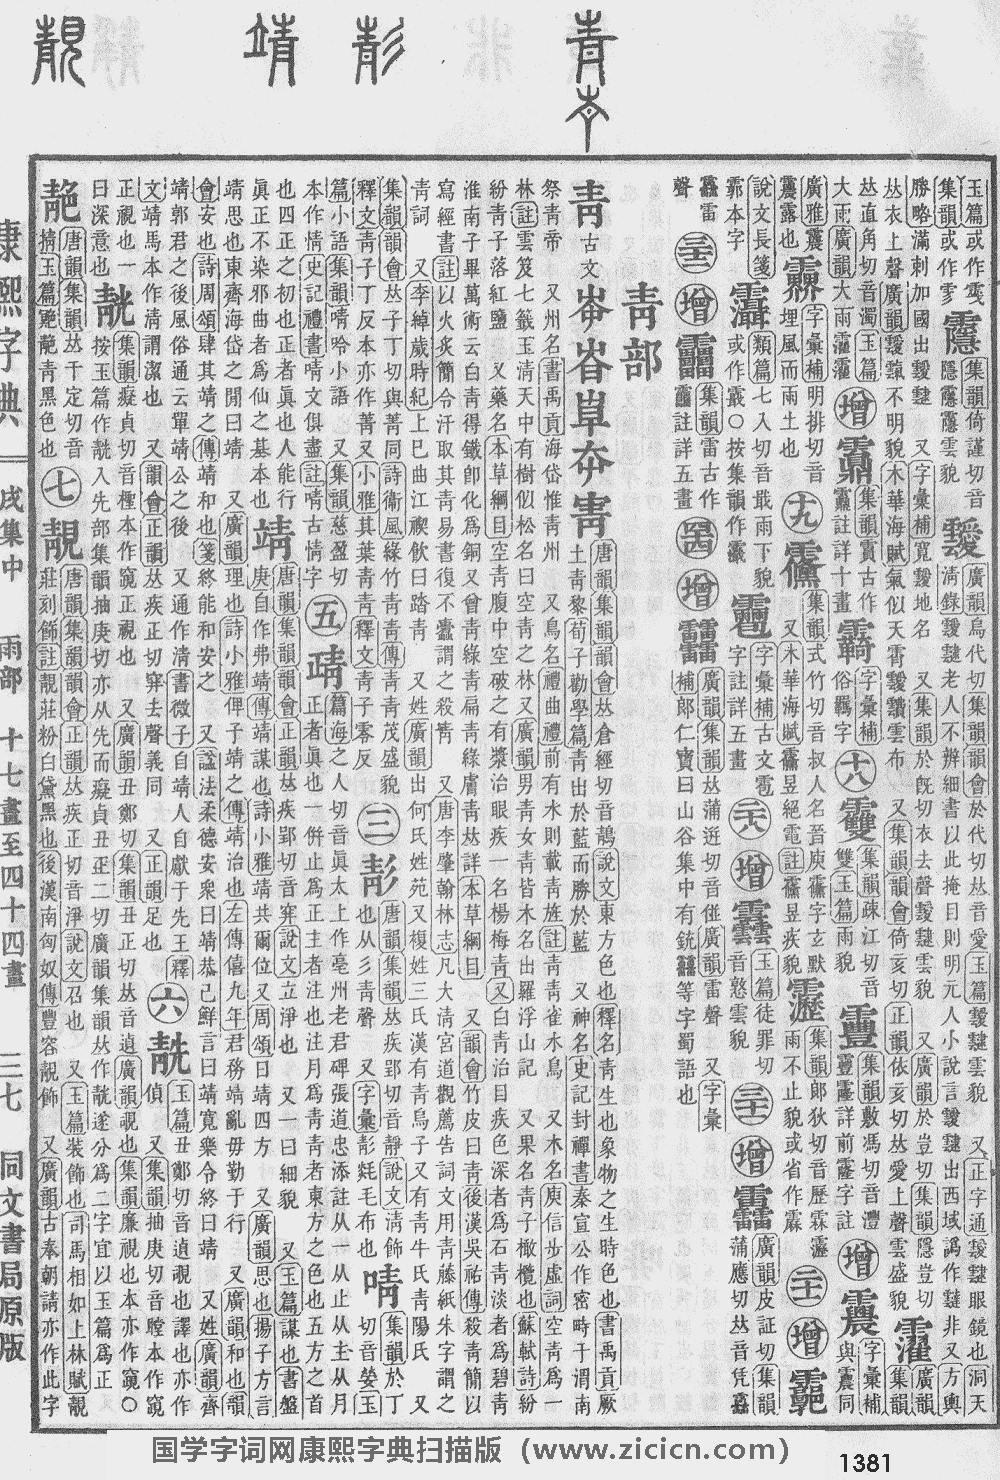 康熙字典 戌集中 雨部 十七畫至四十四畫 三七 同文書局原版
玉篇或作
集韻或作
集韻倚謹切音
隱 雲貌
靉
廣韻烏代切集韻韻會於代切𠀤音愛玉篇靉靆雲貌 又正字通靉靆眼鏡也洞天
清錄靉靆老人不辨細書以此掩目則明元人小說言靉靆出西域譌作靆非又方輿
勝略滿剌加國出靉靆 又字彙補 靉地名 又集韻於旣切衣去聲靉靆雲貌 又廣韻於豈切集韻隱豈切
𠀤衣上聲廣韻靉霼不明貌木華海賦氣似天霄靉靅雲布 又集韻韻會倚亥切正韻依亥切𠀤愛上聲雲盛貌
廣韻
集韻
𠀤直角切音濁玉篇
大雨廣韻大雨
增
集韻 古作
註詳十畫
字彙補
俗羈字
十八
雙
集韻疎江切音
雙玉篇雨貌
靊
集韻敷馮切音灃
靊 詳前 字註
增
字彙補
與震同
廣雅
露也
字彙補明排切音
埋風而雨土也
十九
集韻式竹切音叔人名晉庾 字玄默
又木華海賦 昱絕電註 昱疾貌
靂
集韻郞狄切音歷霖
雨不止貌或省作
二十一
增
說文長箋
本字
類篇七入切音戢雨下貌
或作霵○按集韻作
字彙補古文雹
字註詳五畫
二十八
增
玉篇徒罪切
音憝雲貌
三十一
增
廣韻皮証切集韻
蒲應切𠀤音凭
雷
聲
三十二
增
集韻雷古作
註詳五畫
四十四
增
廣韻集韻𠀤蒲迸切音 廣韻雷聲 又字彙
補郞仁寶曰山谷集中有銃 等字蜀語也
靑部
靑
古文
唐韻集韻韻會𠀤倉經切音鶄說文東方色也釋名靑生也象物之生時色也書禹貢厥
土靑黎荀子勸學篇靑出於藍而勝於藍 又神名史記封禪書秦宣公作密畤于渭南
祭靑帝 又州名書禹貢海岱惟靑州 又鳥名禮曲禮前有水則載靑旌註靑靑雀水鳥 又木名庾信步虛詞空靑爲一
林註雲笈七籤玉淸天中有樹似松名曰空靑之林 又廣韻男靑女靑皆木名出羅浮山記 又果名靑子橄欖也蘇軾詩紛
紛靑子落紅鹽 又藥名本草綱目空靑腹中空破之有漿治眼疾一名楊梅靑 又白靑治目疾色深者爲石靑淡者爲碧靑
淮南子畢萬術云白靑得鐵卽化爲銅 又曾靑綠靑扁靑綠膚靑𠀤詳本草綱目 又韻會竹皮曰靑後漢吳祐傳殺靑𥳑以
寫經書註以火炙𥳑令汗取其靑易書復不蠹謂之殺靑 又唐李肇翰林志凡大淸宮道觀薦告詞文用靑藤紙朱字謂之
靑詞 又李綽歲時紀上巳曲江禊飮曰踏靑 又姓廣韻出何氏姓苑 又複姓三氏漢有靑烏子 又有靑牛氏靑陽氏 又
集韻韻會𠀤子丁切與菁同詩衞風綠竹靑靑傳靑靑茂盛貌
釋文靑子丁反本亦作菁又小雅其葉靑靑釋文靑子零反
三
彭
唐韻集韻𠀤疾郢切音靜說文淸飾
也从彡靑聲 又字彙彭毿毛布也
啨
集韻於丁
切音甇玉
篇小語集韻啨呤小語 又集韻慈盈切
本作情史記禮書啨文俱盡註啨古情字
五
篇海之人切音眞太上作亳州老君碑張道忠添註从靑从止从主从月
正者眞也一倂止爲正主者注也注月爲靑靑者東方之色也五方之首
也四正之初也正者眞也人能行
眞正不染邪曲者爲仙之基本也
靖
唐韻集韻韻會正韻𠀤疾郢切音穽說文立淨也 又一曰細貌 又玉篇謀也書盤
庚自作弗靖傳靖謀也詩小雅靖共爾位又周頌日靖四方 又廣韻思也揚子方言
靖思也東齊海岱之閒曰靖 又廣韻理也詩小雅俾予靖之傳靖治也左傳僖九年君務靖亂毋勤于行 又廣韻和也韻
會安也詩周頌肆其靖之傳靖和也箋終能和安之 又諡法柔德安衆曰靖恭己鮮言曰靖寬樂令終曰靖 又姓廣韻齊
靖郭君之後風俗通云單靖公之後 又通作淸書微子自靖人自獻于先王釋
文靖馬本作淸謂潔也 又韻會正韻𠀤疾正切穽去聲義同 又正韻足也
六
玉篇丑鄭切音遉覗也譯也亦作
偵 又集韻抽庚切音瞠本作䆸
正視也一曰深意也
集韻癡貞切音檉本作䆸正視也 又廣韻丑鄭切集韻丑正切𠀤音遉廣韻覗也集韻廉視也本亦作䆸○
按玉篇作靗入先部集韻抽庚切亦从先而癡貞丑正二切廣韻集韻𠀤作靗遂分爲二字宜以玉篇爲正
靘
唐韻集韻𠀤千定切音
掅玉篇靘艵靑黑色也
七
靚
唐韻集韻韻會正韻𠀤疾正切音淨說文召也 又玉篇裝飾也司馬相如上林賦靚
莊刻飾註靚莊粉白黛黑也後漢南匈奴傳豐容靚飾 又廣韻古奉朝請亦作此字
国学字词网康熙字典扫描版（www.zicicn.com）
1381